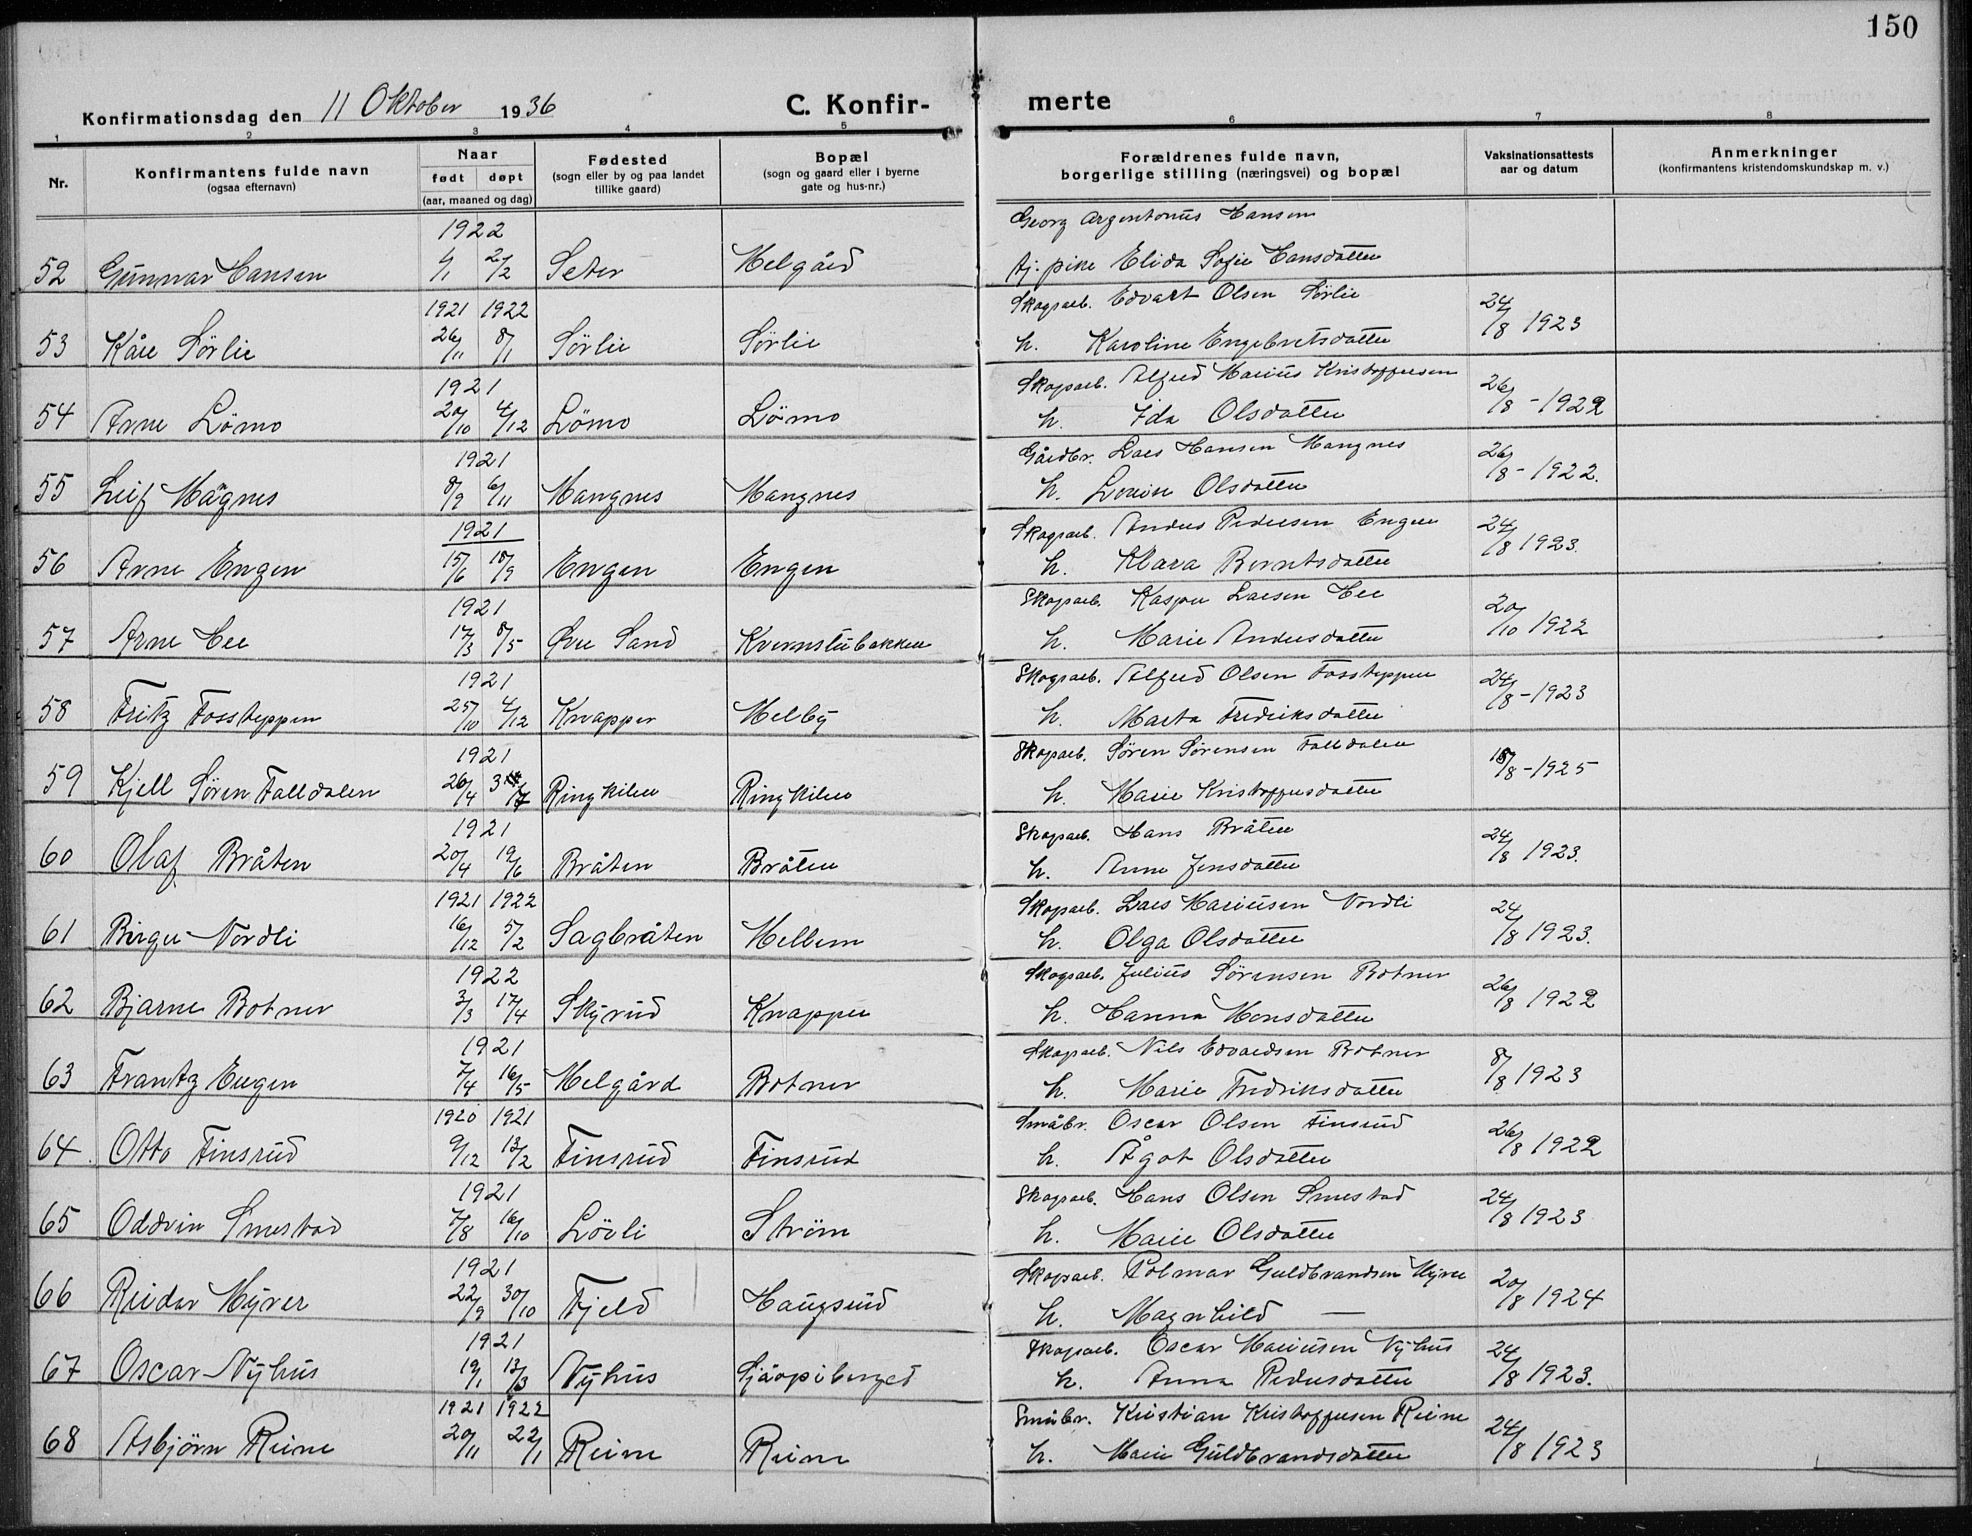 150
Konfirmationsdag den 11 Oktober 1936
C. Konfir- merte
1 2 3 4 5 6 7 8
Nr. Konfirmantens fulde navn (ogsaa efternavn) Naar født døpt (aar, maaned og dag) Fødested (sogn eller by og paa landet tillike gaard) Bopæl (sogn og gaard eller i byerne gate og hus-nr.) Forældrenes fulde navn, borgerlige stilling (næringsvei) og bopæl Vaksinationsattests aar og datum Anmerkninger (konfirmantens kristendomskundskap m. v.)
1922 Georg Argentonius Hansen
52 Gunnar Hansen 2/2 Seter Melgård tj. pike Elida Sofie Hansdatter
1921 1922 Skogsarb. Edvart Olsen Sørlie 24/8 1923
53 Kåre Sørlie 26/11 8/1 Sørlie Sørlie h. Karoline Engebretsdatter
1921 Skogsarb. Alfred Marius Kristoffersen 26/8 - 1922
54 Arne Lömo 20/10 4/12 Lömo Lömo h. Ida Olsdatter
1921 Gårdbr. Lars Hansen Mangnes 26/8 - 1922.
55 Leif Magnes 8/9 6/11 Mangnes Mangnes h. Lovise Olsdatter
1921 Skogsarb. Anders Pedersen Engen 24/8 1923.
56 Arne Engen 15/6 18/9 Engen Engen h. Klara Berntsdatter
1921 Skogsarb. Kasper Larsen Hee 20/10 1922
57 Arne Hee 17/3 8/5 Øvre Sand Kvernstubakken h. Marie Andersdatter
1921 Skogsarb. Alfred Olsen Fossteppen 24/8 - 1923
58 Fritz Fossteppen 25/10 4/12 Knapper Melby h. Marta Fredriksdatter
1921 Skogsarb. Søren Sørensen Falldalen 18/8 - 1925
59 Kjell Søren Falldalen 26/4 3/7 Ringkilen Ringkilen h. Marie Kristoffersdatter
1921 Skogsarb. Hans Bråten 24/8 1923.
60 Olaf Bråten 20/4 19/6 Bråten Bråten h. Anne Jensdatter
1921 1922 Skogsarb. Lars Mariusen Nordli 24/8 1923.
61 Birger Nordli 16/12 5/2 Sagbråten Mellem h. Olga Olsdatter
1922 Skogsarb. Julius Sørensen Botner 26/8 1922
62 Bjarne Botner 3/3 17/4 Skyrud Knapper h. Hanna Monsdatter
1921 Skogsarb. Nils Edvardsen Botner 8/8 1923
63 Frantz Engen 7/4 16/5 Melgård Botner h. Marie Fredriksdatter
1920 1921 Småbr. Oscar Olsen Finsrud 26/8 1922
64. Otto Finsrud 9/12 13/2 Finsrud Finsrud h. Ågot Olsdatter
1921 Skogsarb. Hans Olsen Smestad 24/8 1923
65 Oddvin Smestad 7/8 16/10 Lövli Ström h. Marie Olsdatter
1921 Skogsarb. Polmar Guldbrandsen Myrer 20/8 1924
66 Reidar Myrer 22/9 30/10 Fjeld Haugsrud h. Magnhild —
1921 Skogsarb. Oscar Mariusen Nyhus 24/8 1923.
67 Oscar Nyhus 19/1 13/3 Nyhus h. Anna Pedersdatter
1921 1922 Småbr. Kristian Kristoffersen Reine 24/8 1923
68 Asbjörn Reine 20/11 22/1 Reine Reine h. Marie Guldbrandsdatter